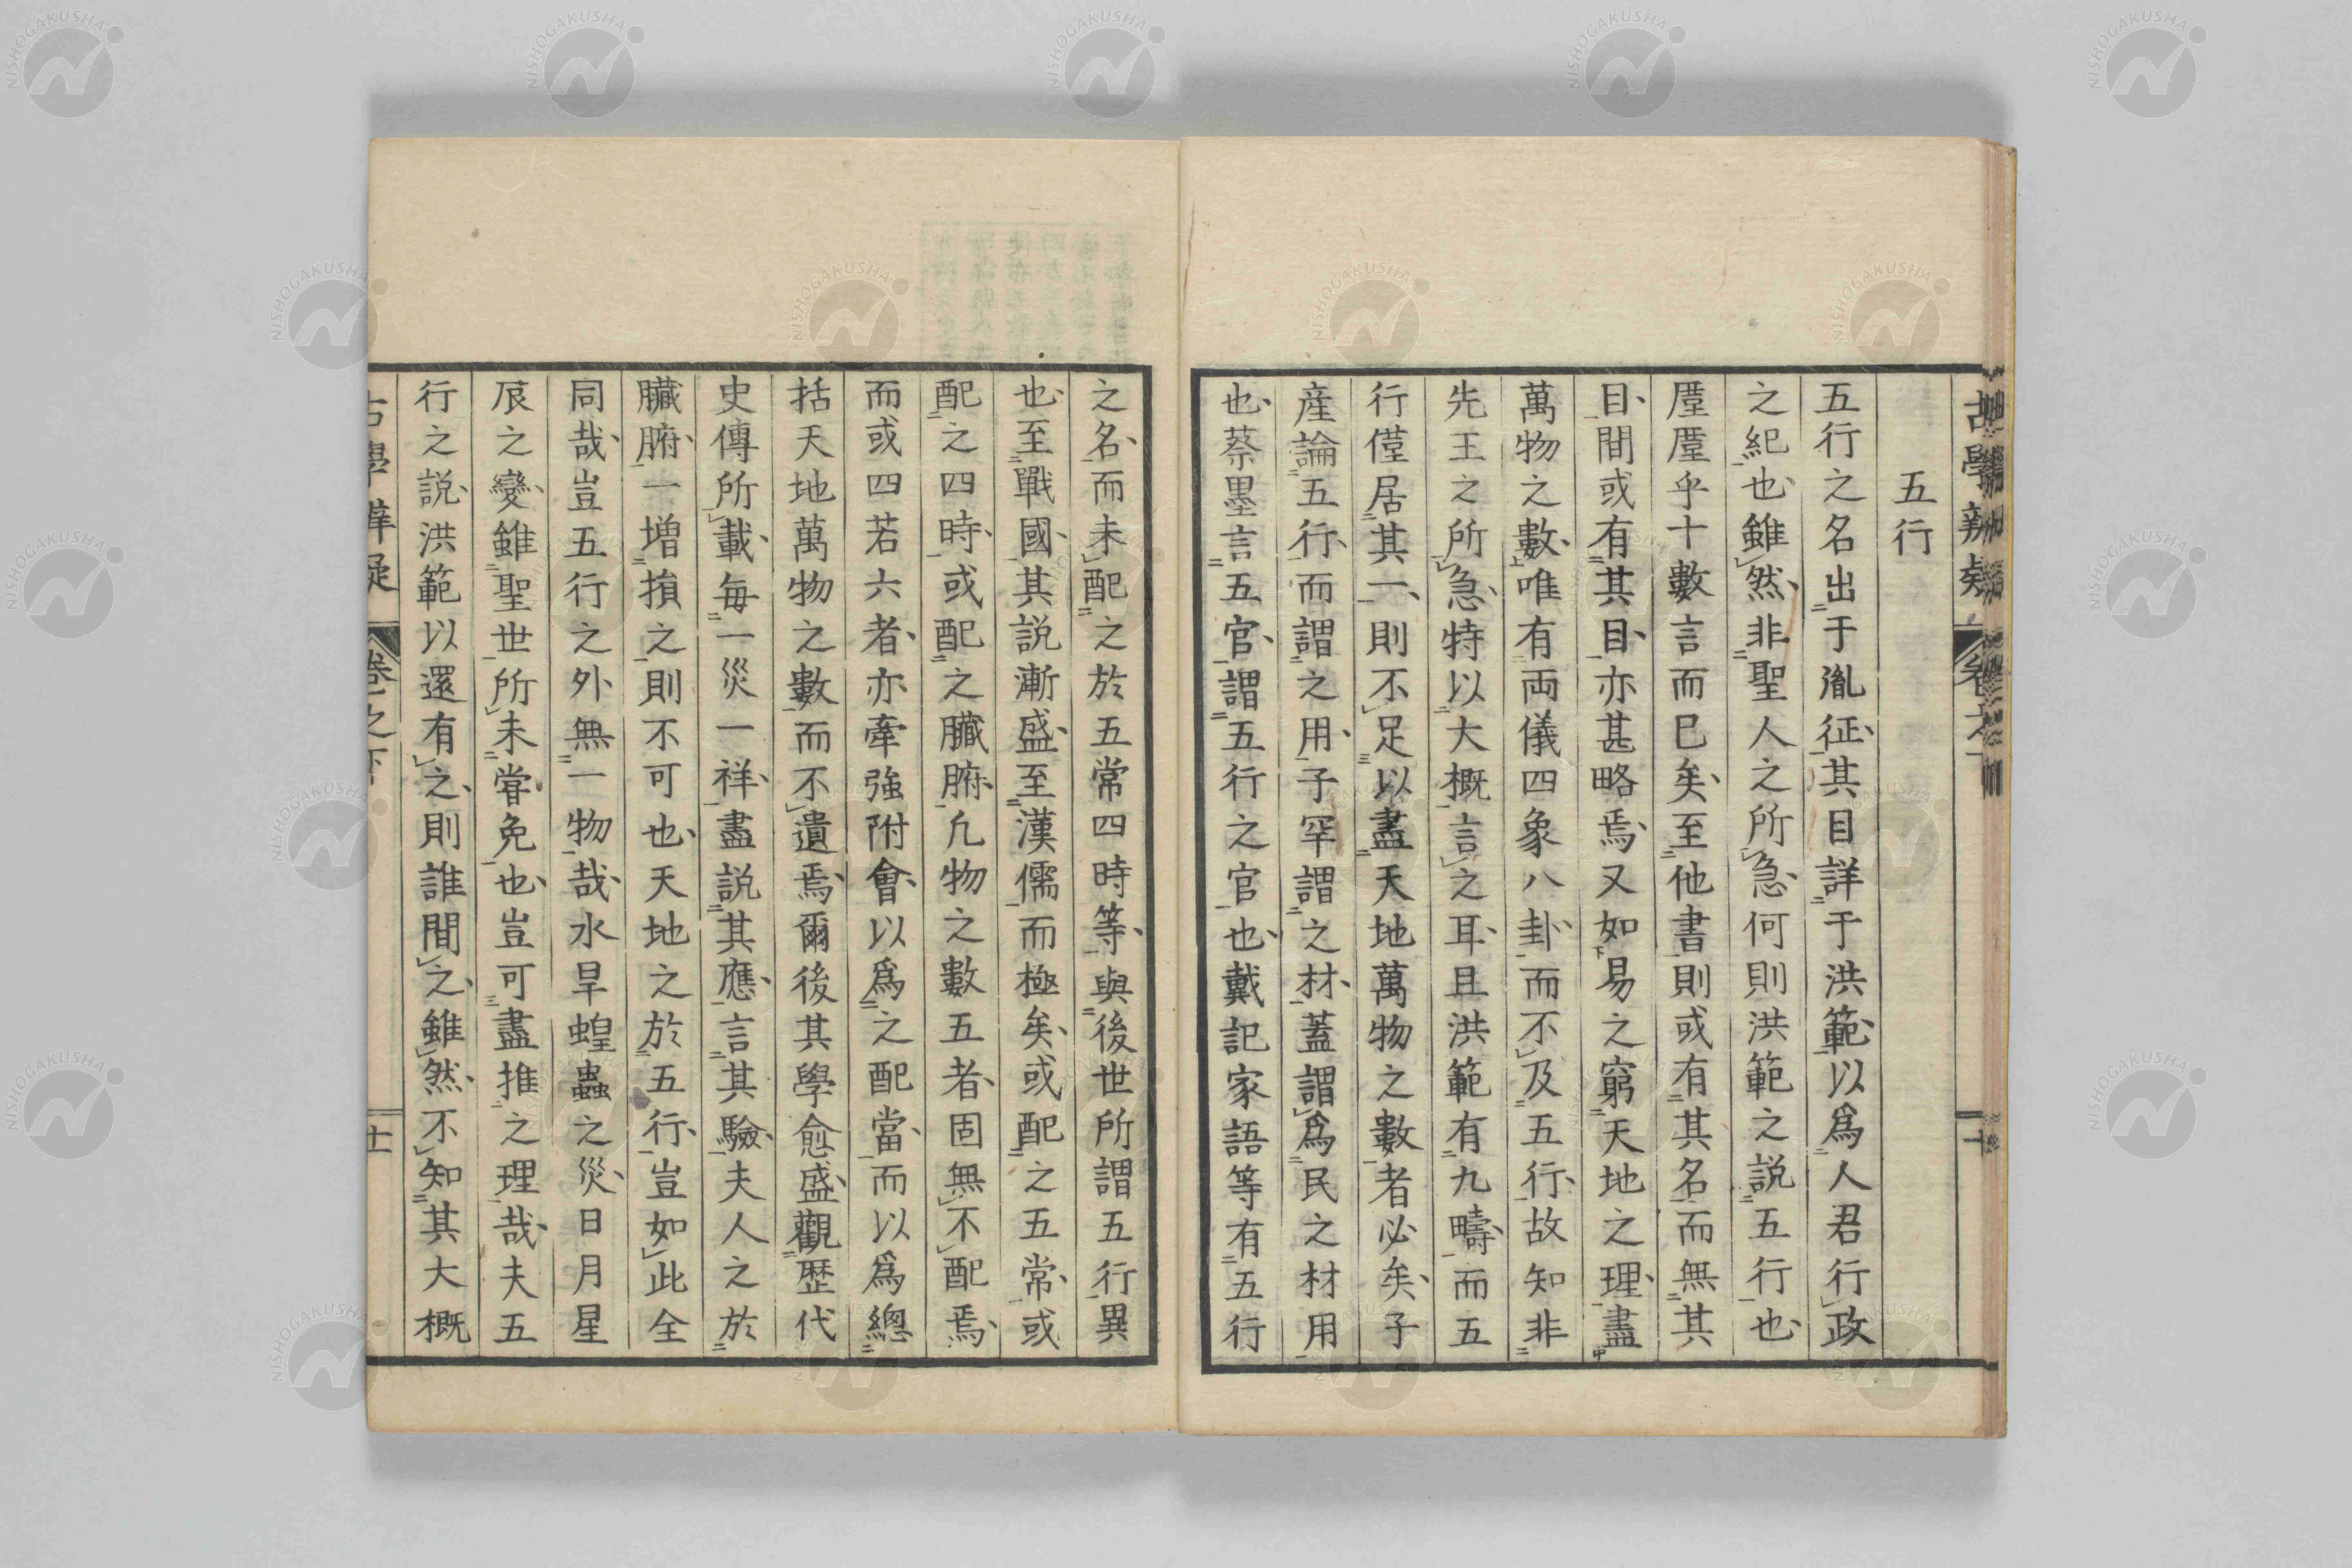 五行
五行之名出于胤征其目詳于洪範以爲人君行政
之紀也雖然非聖人之所急何則洪範之説五行也
壥壥乎十數言而已矣至他書則或有其名而無其
目間或有其目亦甚略焉又如易之窮天地之理盡
萬物之數唯有両儀四象八卦而不及五行故知非
先王之所急特以大概言之耳且洪範有九疇而五
行僅居其一則不足以盡天地萬物之數者必矣子
産論五行而謂之用子罕謂之材蓋謂爲民之材用
也蔡墨言五官謂五行之官也戴記家語等有五行
之名而未配之於五常四時等與後世所謂五行異
也至戰國其説漸盛至漢儒而極矣或配之五常或
配之四時或配之臓腑凢物之數五者固無不配焉
而或四若六者亦牽強附會以爲之配當而以爲總
括天地萬物之數而不遺焉爾後其學愈盛觀歴代
史傳所載毎一災一祥盡説其應言其驗夫人之於
臓腑一増損之則不可也天地之於五行豈如此全
同哉豈五行之外無一物哉水旱蝗蟲之災日月星
辰之變雖聖世所未甞免也豈可盡推之理哉夫五
行之説洪範以還有之則誰間之雖然不知其大概
古學辨疑
卷之下
十
NISHOGAKUSHA